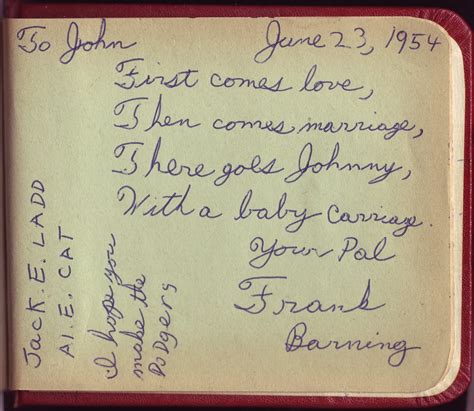 To John June 23, 1954
First comes love,
Then comes marriage,
There goes Johnny,
With a baby carriage.
Your Pal
Frank
Barning
Jack. E. LADD
Al. E. CAT
I hope you
make the
Dodgers